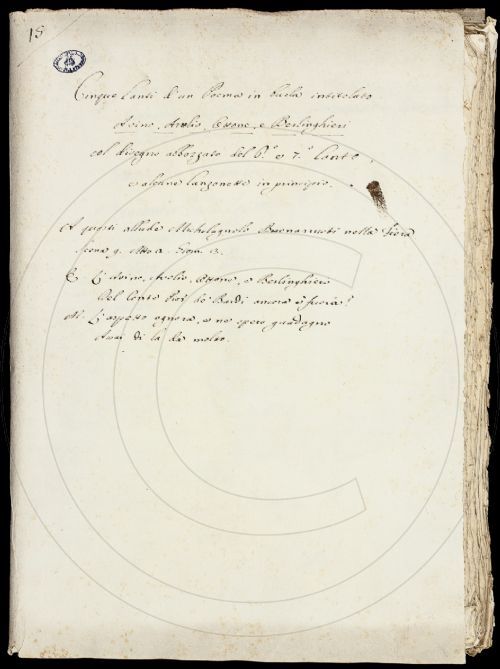 15
Cinque Canti d'un Poema in burla intitolato
Avino, Avolio, Ottone, e Berlinghieri
col disegno abbozzato del 6.º e 7.º Canto,
e alcune Canzonette in principio.
A questi allude Michelagnolo Buonarruoti nella Fiera
Scena 9. Atto 2. Giorn. 3.
E L'Avino, Avolio, Ottone, e Berlinghieri
Del Conte de' Bardi ancora
L'aspetto ognora, e ne spero guadagno
Assai di là da molto.